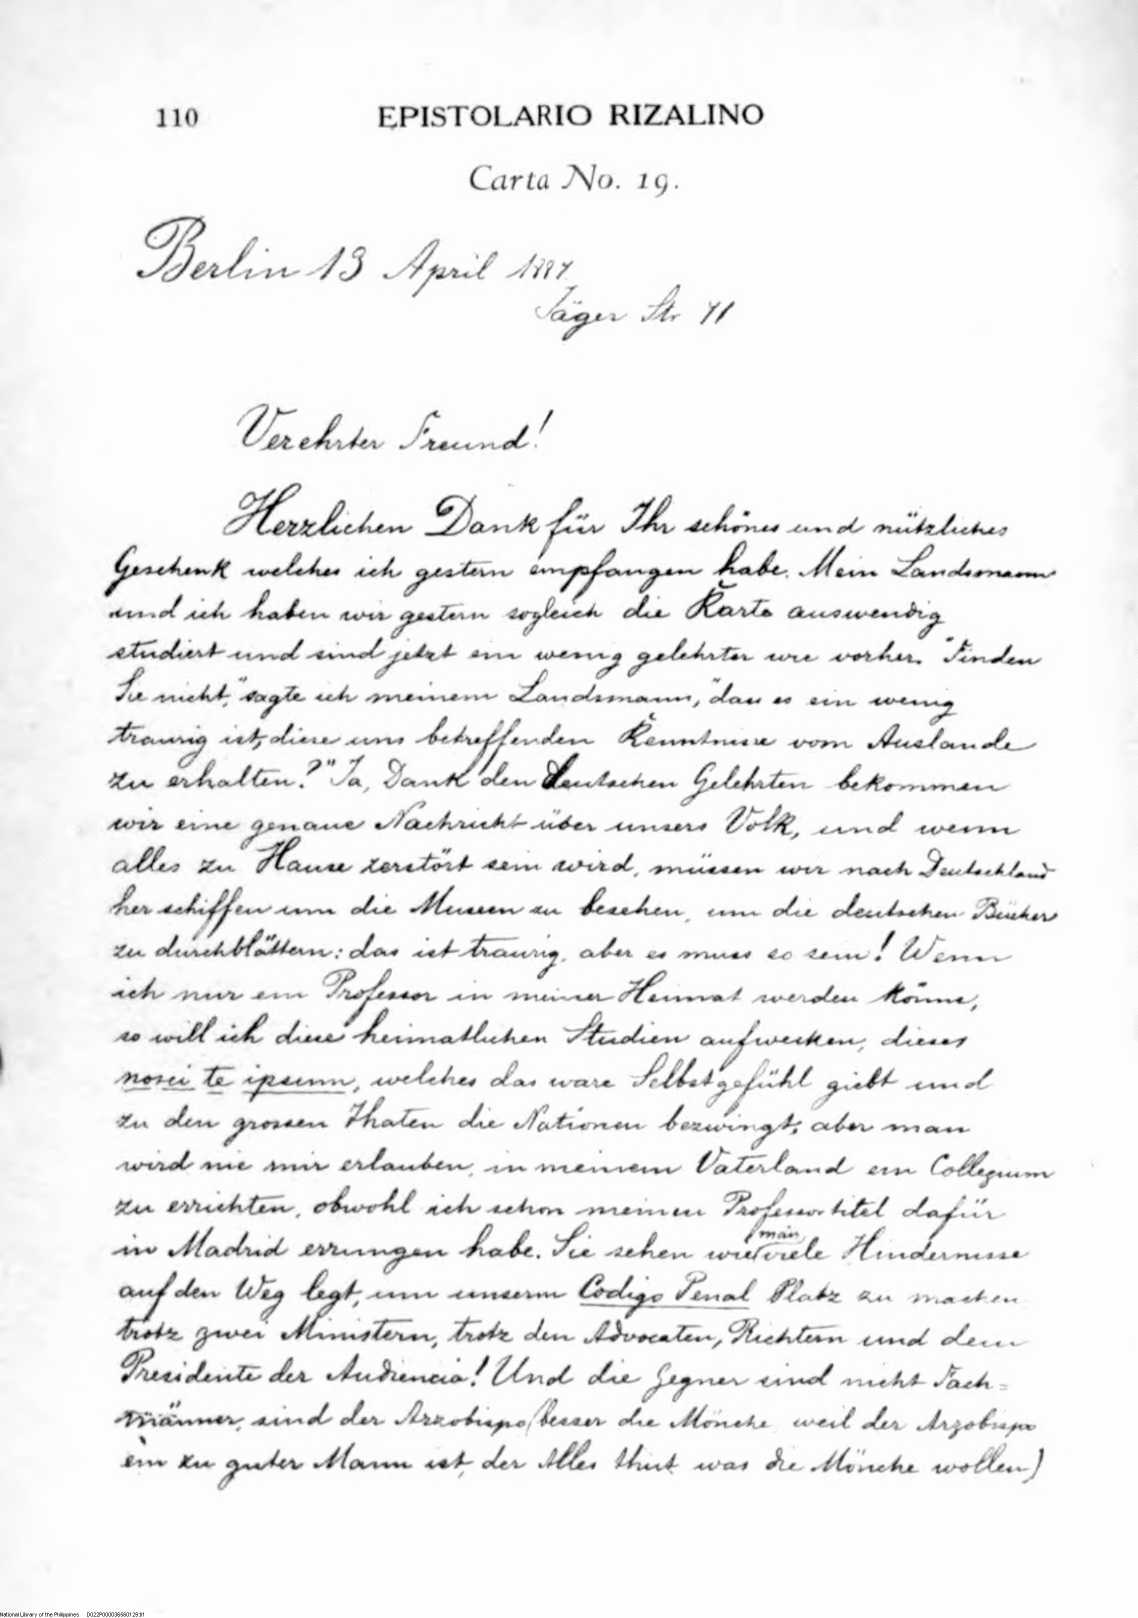 110 EPISTOLARIO RIZALINO
Carta No. 19.
Berlin 13 April 1887
Jäger Str 71
Verehrter Freund!
Herzlichen Dank für Ihr schönes und nützliches
Geschenk welches ich gestern empfangen habe. Mein Landsmann
und ich haben wir gestern sogleich die Karte auswendig
studiert und sind jetzt ein wenig gelehrter wie vorher. "Finden
Sie nicht," sagte ich meinem Landsmann, "dass es ein wenig
traurig ist, diese uns betreffenden Kenntnisse vom Auslande
zu erhalten?" Ja, Dank den deutschen Gelehrten bekommen
wir eine genaue Nachricht über unsers Volk, und wenn
alles zu Hause zerstört sein wird, müssen wir nach Deutschland
her schiffen um die Museen zu besehen, um die deutschen Bücher
zu durchblättern: das ist traurig, aber es muss so sein! Wenn
ich nur ein Professor in meiner Heimat werden könne,
so will ich diese heimatlichen Studien aufwecken, dieses
nosci te ipsum, welches das ware Selbstgefühl giebt und
zu den grossen Thaten die Nationen bezwingt; aber man
wird nie mir erlauben, in meinem Vaterland ein Collegium
zu errichten, obwohl ich schon meinen Professortitel dafür
in Madrid errungen habe. Sie sehen wie man viele Hindernisse
auf den Weg legt, um unserm Codigo Penal Platz zu machen
trotz zwei Ministern, trotz den Advocaten, Richtern und dem
Presidente der Audiencia! Und die Gegner sind nicht Fach=
männer, sind der Arzobispo (besser die Mönche, weil der Arzobispo
ein zu guter Mann ist, der Alles thut was die Mönche wollen)
National Library of the Philippines